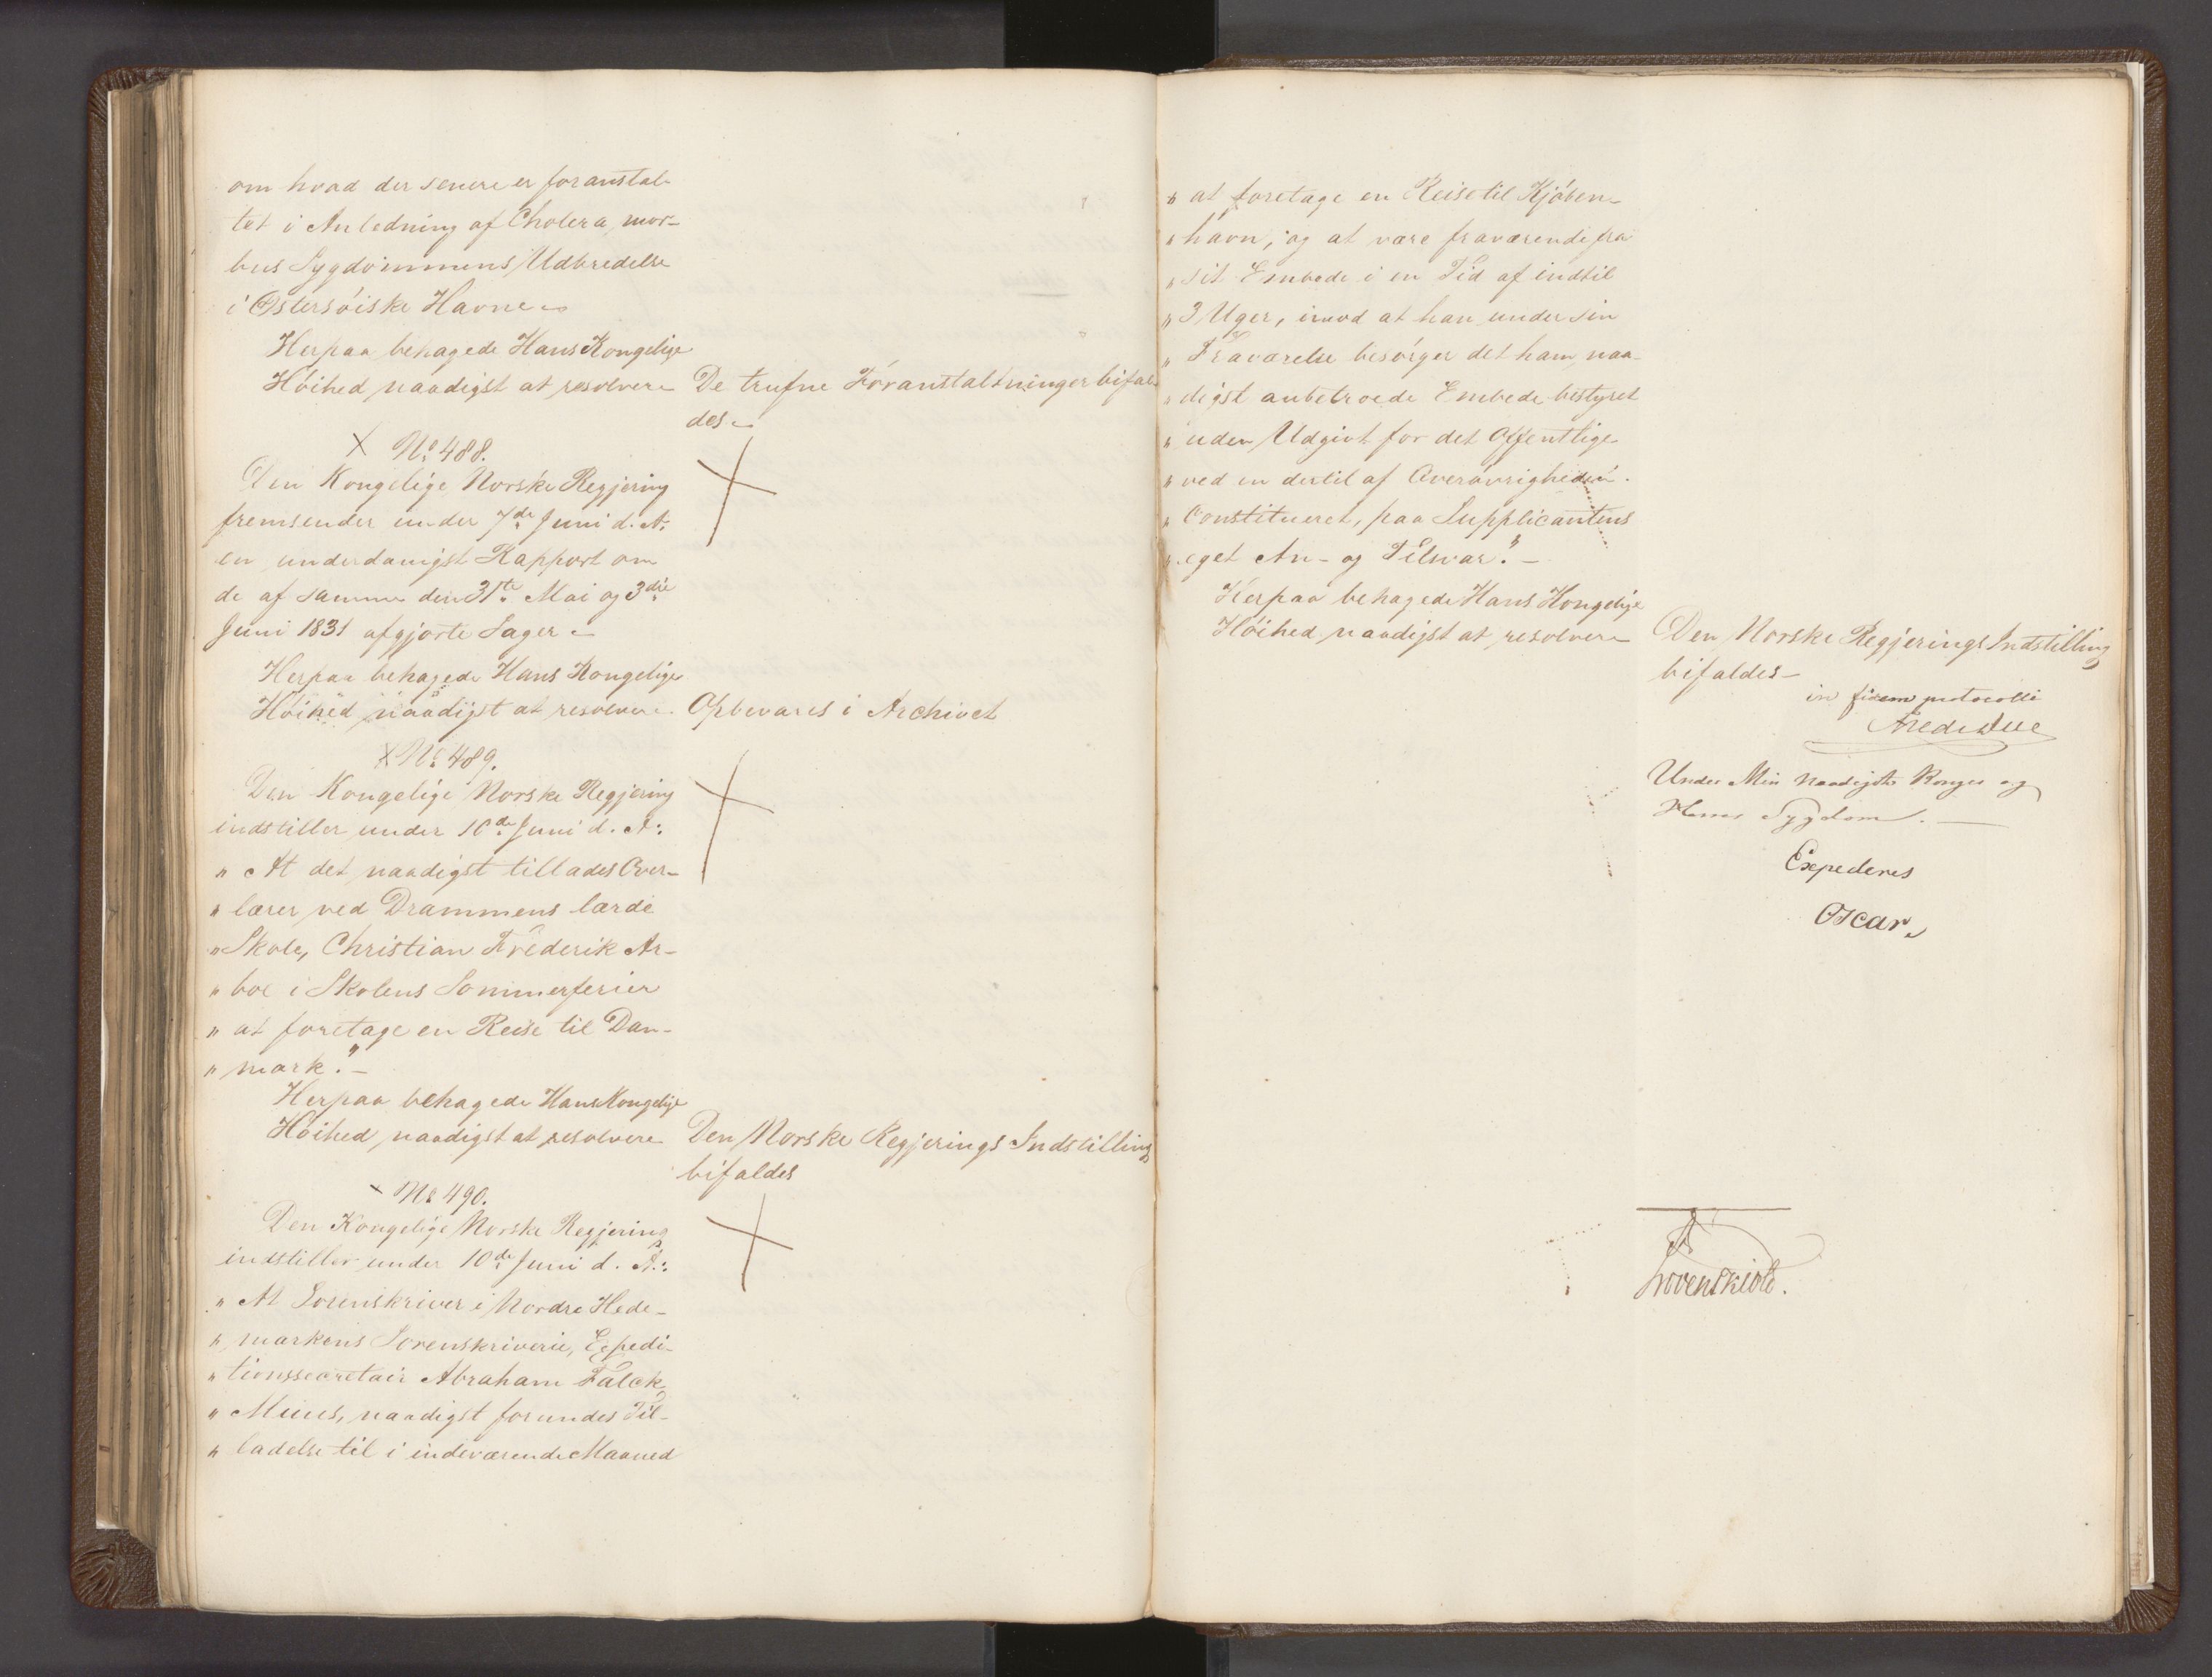 om hvad der senere er foranstal-
tet i Anledning af Cholera mor-
bus Sygdommens Udbredelse
i Østersöiske Havne
Herpaa behagede Hans Kongelige
Höihed naadigst at resolvere
De trufne Foranstaltninger bifal-
des
X No 488.
Den Kongelige Norske Regjering
fremsender under 7de Juni d. A.
en underdanigst Rapport om
de af samme den 31te Mai og 3die
Juni 1831 afgjorte Sager
Herpaa behagede Hans Kongelige
Höihed naadigst at resolvere
Opbevares i Archivet
X No 489.
Den Kongelige Norske Regjering
indstiller under 10de Juni d. A:
" At det naadigst tillades Over-
" lærer ved Drammens lærde
" Skole, Christian Frederik Ar-
" boe i Skolens Sommerferier
" at foretage en Reise til Dan-
" mark." -
Herpaa behagede Hans Kongelige
Höihed naadigst at resolvere
Den Norske Regjerings Indstilling
bifaldes
No 490.
Den Kongelige Norske Regjering
indstiller under 10de Juni d. A.:
" At Sorenskriver i Nordre Hede-
" markens Sorenskriverie, Expedi-
" tionssecretair Abraham Falck
" Muus, naadigst forundes Til-
" ladelse til i indeværende Maaned
" at foretage en Reise til Kjöben-
" havn, og at være fraværende fra
" sit Embede i en Tid af indtil
" 3 Uger, imod at han under sin
" Fraværelse besörger det ham naa-
" digst anbetroede Embede bestyret
" uden Udgivt for det Offentlige
" ved en dertil af Overövrigheden
" Constitueret, paa Supplicantens
" eget An- og Tilsvar." -
Herpaa behagede Hans Kongelige
Höihed naadigst at resolvere
Den Norske Regjerings Indstilling
bifaldes -
in fidem protocolli
Fred. Due
Under Min Naadigste Konges og
Herres Sygdom. -
Expederes
Oscar.
Lövenskiold.